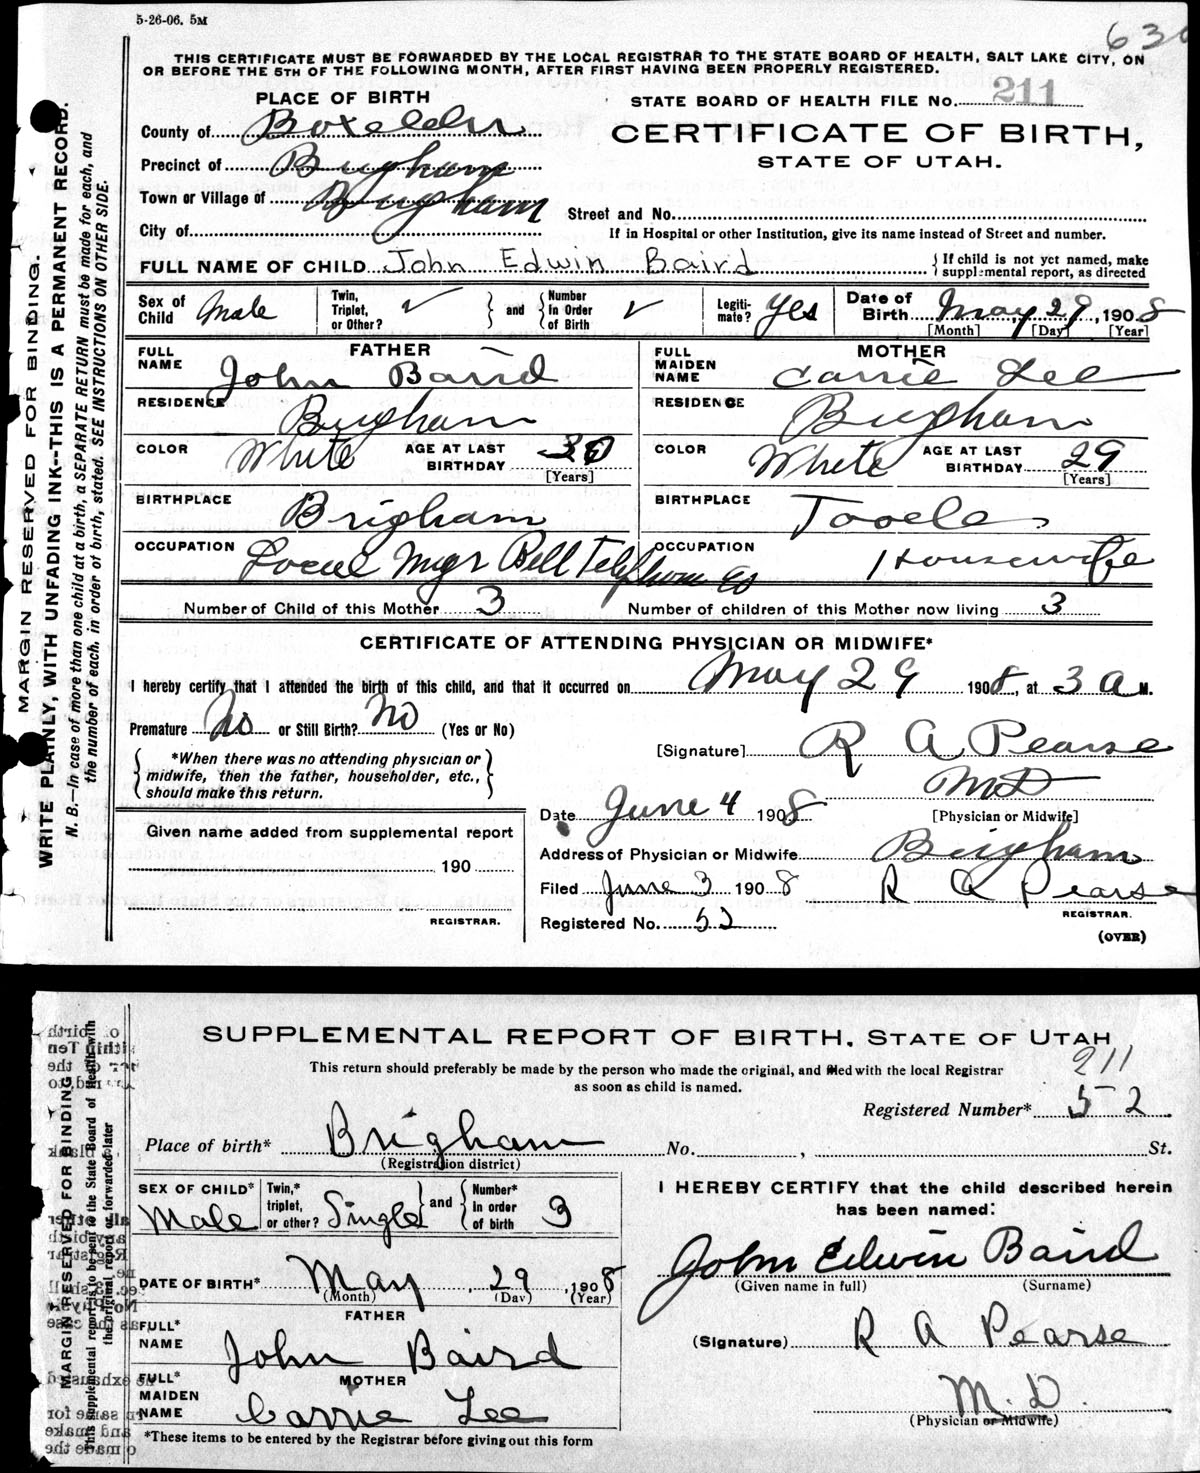 5-26-06. 5M
630
THIS CERTIFICATE MUST BE FORWARDED BY THE LOCAL REGISTRAR TO THE STATE BOARD OF HEALTH, SALT LAKE CITY, ON
OR BEFORE THE 5TH OF THE FOLLOWING MONTH, AFTER FIRST HAVING BEEN PROPERLY REGISTERED.
PLACE OF BIRTH
STATE BOARD OF HEALTH FILE NO. 211
County of Boxelder
CERTIFICATE OF BIRTH,
STATE OF UTAH.
Precinct of Brigham
Town or Village of Brigham
Street and No.
City of
If in Hospital or other Institution, give its name instead of Street and number.
FULL NAME OF CHILD John Edwin Baird { If child is not yet named, make supplemental report, as directed
Sex of Child Male Twin, Triplet, or Other? ✓ } and { Number In Order of Birth ✓ Legitimate? Yes Date of Birth May 29, 1908
[Month] [Day] [Year]
FATHER
MOTHER
FULL NAME John Baird
FULL MAIDEN NAME Carrie Lee
RESIDENCE Brigham
RESIDENCE Brigham
COLOR White AGE AT LAST BIRTHDAY 30 [Years]
COLOR White AGE AT LAST BIRTHDAY 29 [Years]
BIRTHPLACE Brigham
BIRTHPLACE Tooele
OCCUPATION Local Mgr Bell Telephone Co
OCCUPATION Housewife
Number of Child of this Mother 3 Number of children of this Mother now living 3
CERTIFICATE OF ATTENDING PHYSICIAN OR MIDWIFE*
I hereby certify that I attended the birth of this child, and that it occurred on May 29 1908, at 3 A M.
Premature No or Still Birth? No (Yes or No)
[Signature] R A Pearse
{ *When there was no attending physician or midwife, then the father, householder, etc., should make this return. }
MD
[Physician or Midwife]
Date June 4 1908
Given name added from supplemental report
190
Address of Physician or Midwife Brigham
Filed June 3 1908 R A Pearse
REGISTRAR.
REGISTRAR.
Registered No. 52
(OVER)
MARGIN RESERVED FOR BINDING.
WRITE PLAINLY, WITH UNFADING INK--THIS IS A PERMANENT RECORD.
N. B.—In case of more than one child at a birth, a SEPARATE RETURN must be made for each, and
the number of each, in order of birth, stated. SEE INSTRUCTIONS ON OTHER SIDE.
SUPPLEMENTAL REPORT OF BIRTH, STATE OF UTAH
This return should preferably be made by the person who made the original, and filed with the local Registrar
as soon as child is named.
211
Registered Number* 52
Place of birth* Brigham No. , St.
(Registration district)
SEX OF CHILD* Male Twin,* triplet, or other? Single } and { Number* In order of birth 3
I HEREBY CERTIFY that the child described herein
has been named:
John Edwin Baird
(Given name in full) (Surname)
DATE OF BIRTH* May, 29, 1908
(Month) (Day) (Year)
FATHER
FULL* NAME John Baird
(Signature) R A Pearse
MOTHER
FULL* MAIDEN NAME Carrie Lee
M. D.
(Physician or Midwife)
*These items to be entered by the Registrar before giving out this form
MARGIN RESERVED FOR BINDING
This supplemental report is to be sent to the State Board of Health with
the original report or forwarded later